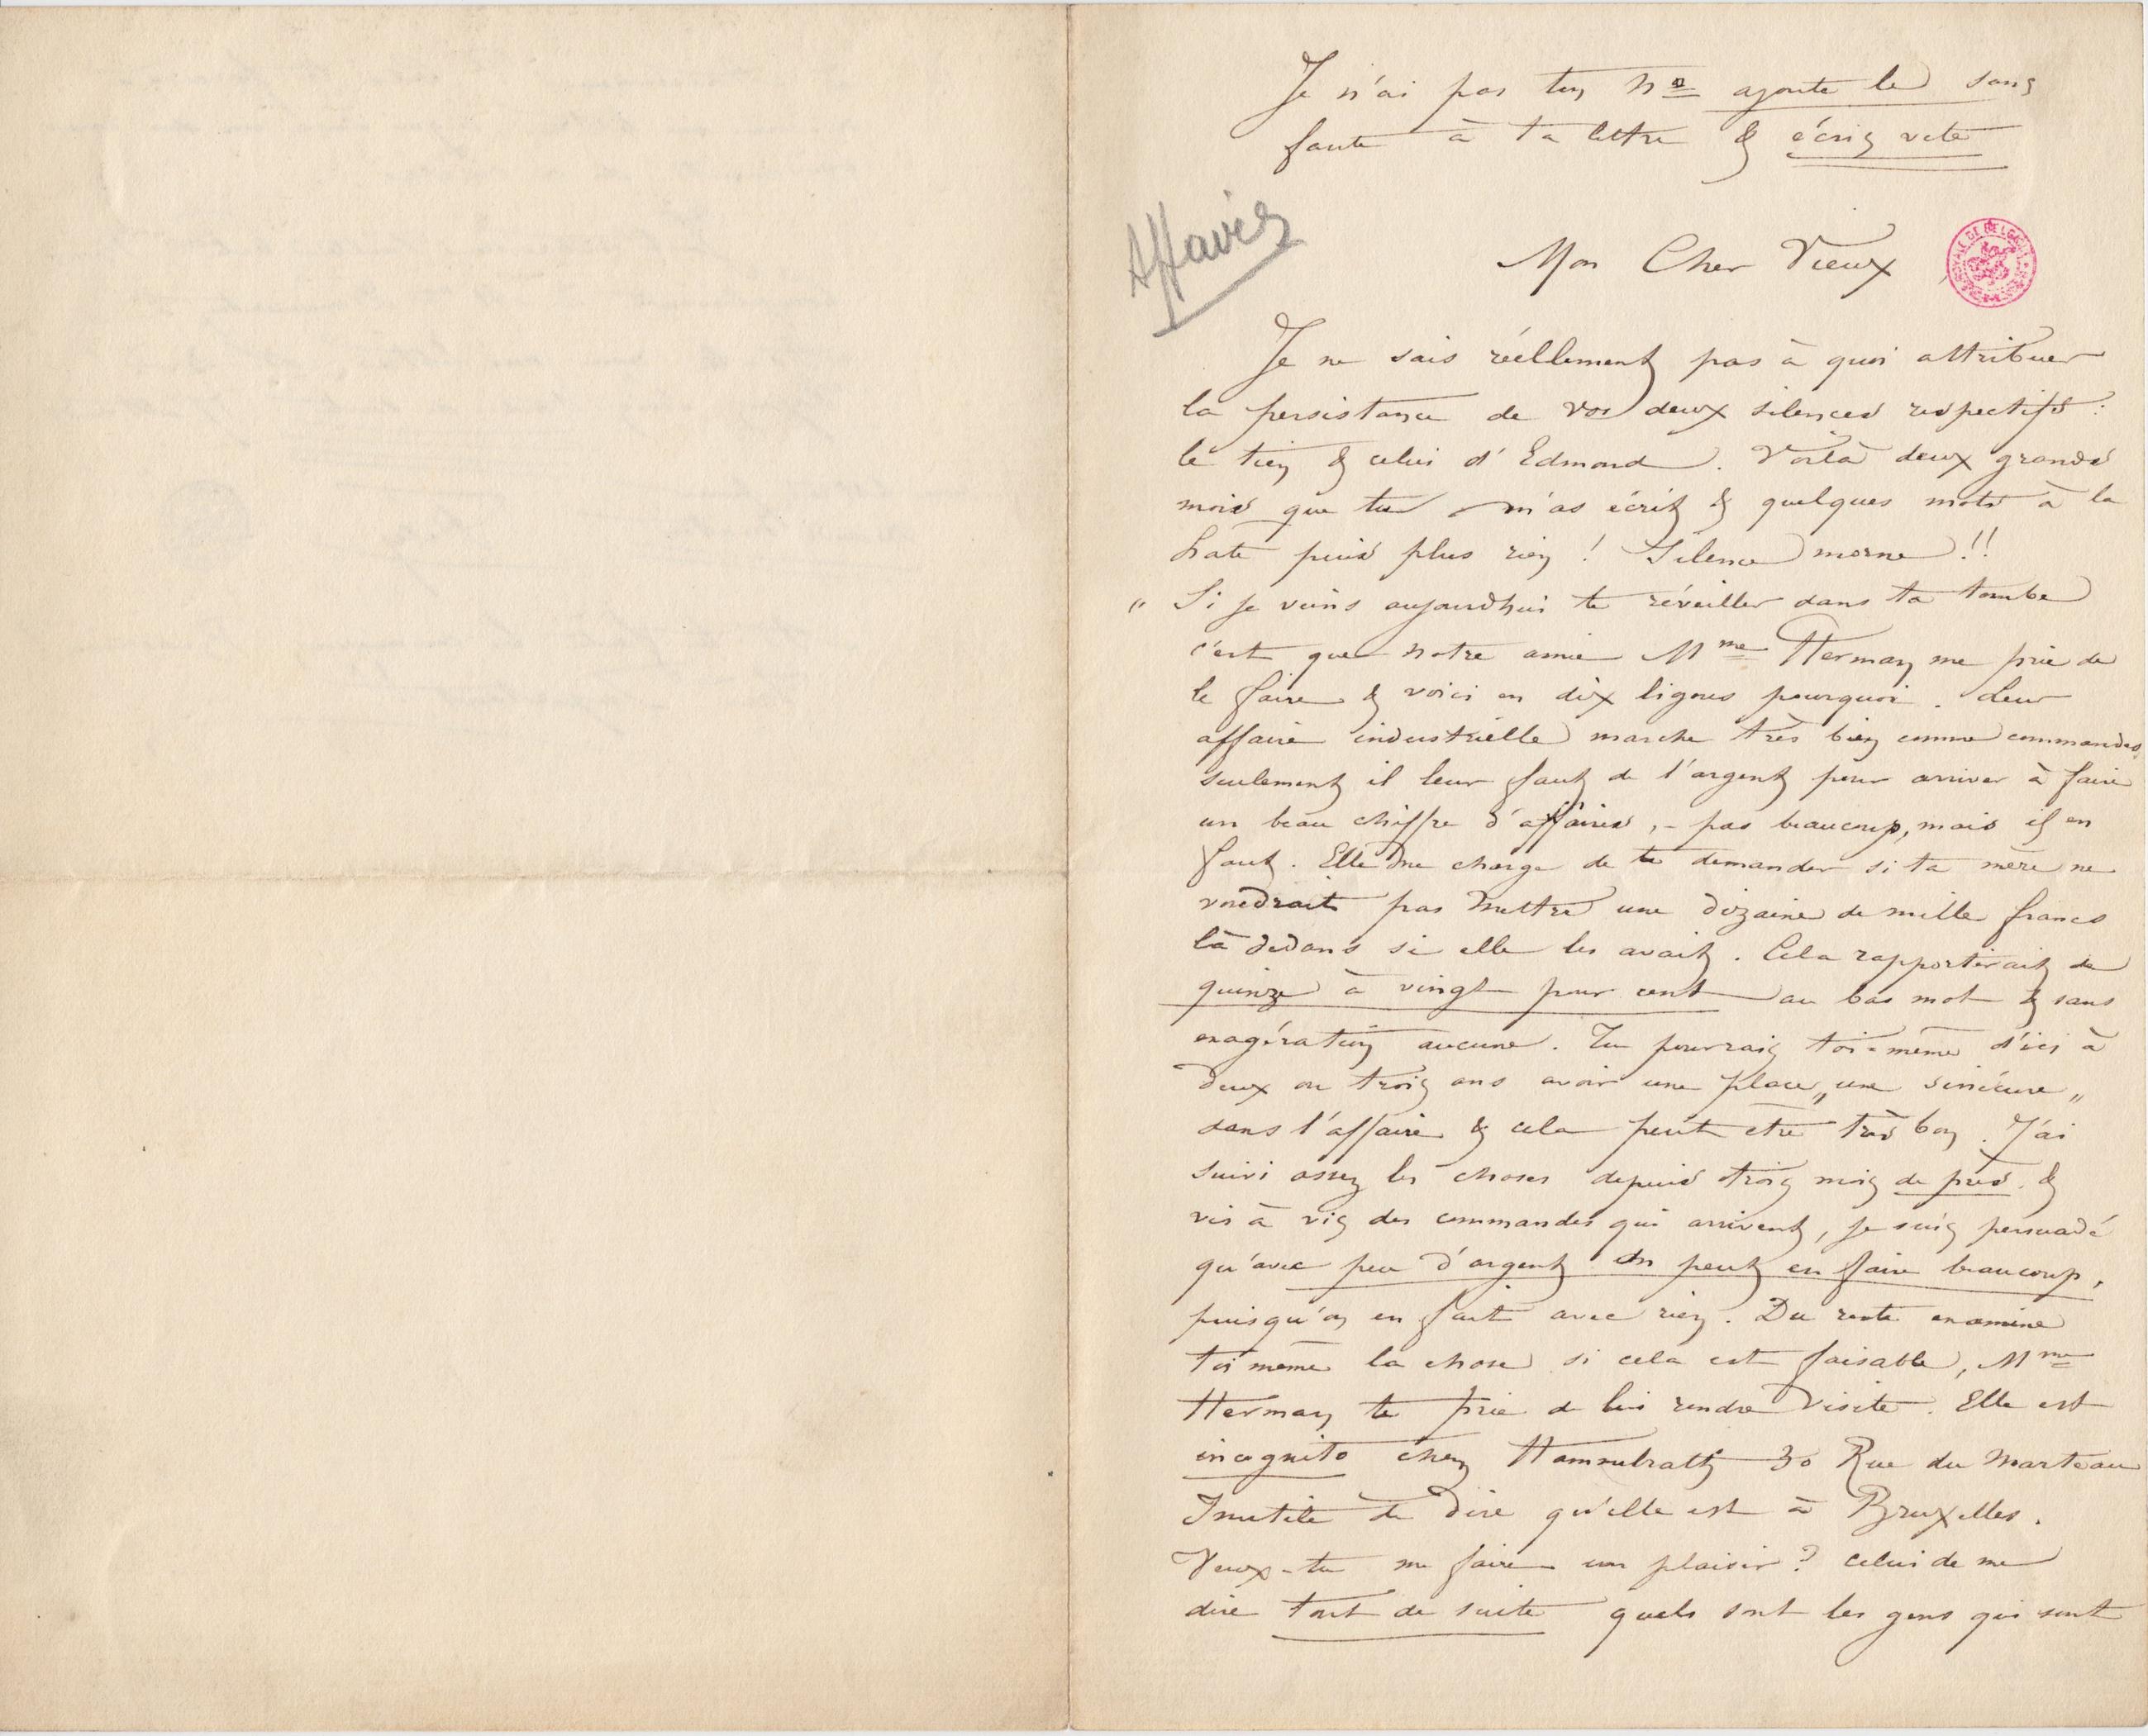 Je n'ai pas ton No ajoute le sans
faute à ta lettre & écris vite
Affaires
Mon Cher Vieux
Je ne sais réellement pas à quoi attribuer
la persistance de vos deux silences respectifs :
le tien & celui d'Edmond. Voilà deux grands
mois que tu m'as écrit & quelques mots à la
hate puis plus rien ! Silence morne !!
" Si je viens aujourdhui te réveiller dans ta tombe
c'est que notre amie Mme Herman me prie de
le faire & voici en dix lignes pourquoi. Leur
affaire industrielle marche très bien comme commandes,
seulement il leur faut de l'argent pour arriver à faire
un beau chiffre d'affaires, - pas beaucoup, mais il en
faut. Elle me charge de te demander si ta mère ne
voudrait pas mettre une dizaine de mille francs
là dedans si elle les avait. Cela rapporterait de
quinze à vingt pour cent au bas mot & sans
exagération aucune. Tu pourrais toi-même d'ici à
deux ou trois ans avoir une place „une sinécure„
dans l'affaire & cela peut etre très bon. J'ai
suivi assez les choses depuis trois mois de près. &
vis à vis des commandes qui arrivent, je suis persuadé
qu'avec peu d'argent on peut en faire beaucoup,
puisqu'on en fait avec rien. Du reste examine
toi même la chose si cela est faisable, Mme
Herman te prie de lui rendre visite. Elle est
incognito chez 30 Rue du Marteau
Inutile de dire qu'elle est à Bruxelles.
Veux-tu me faire un plaisir ? celui de me
dire tout de suite quels sont les gens qui sont